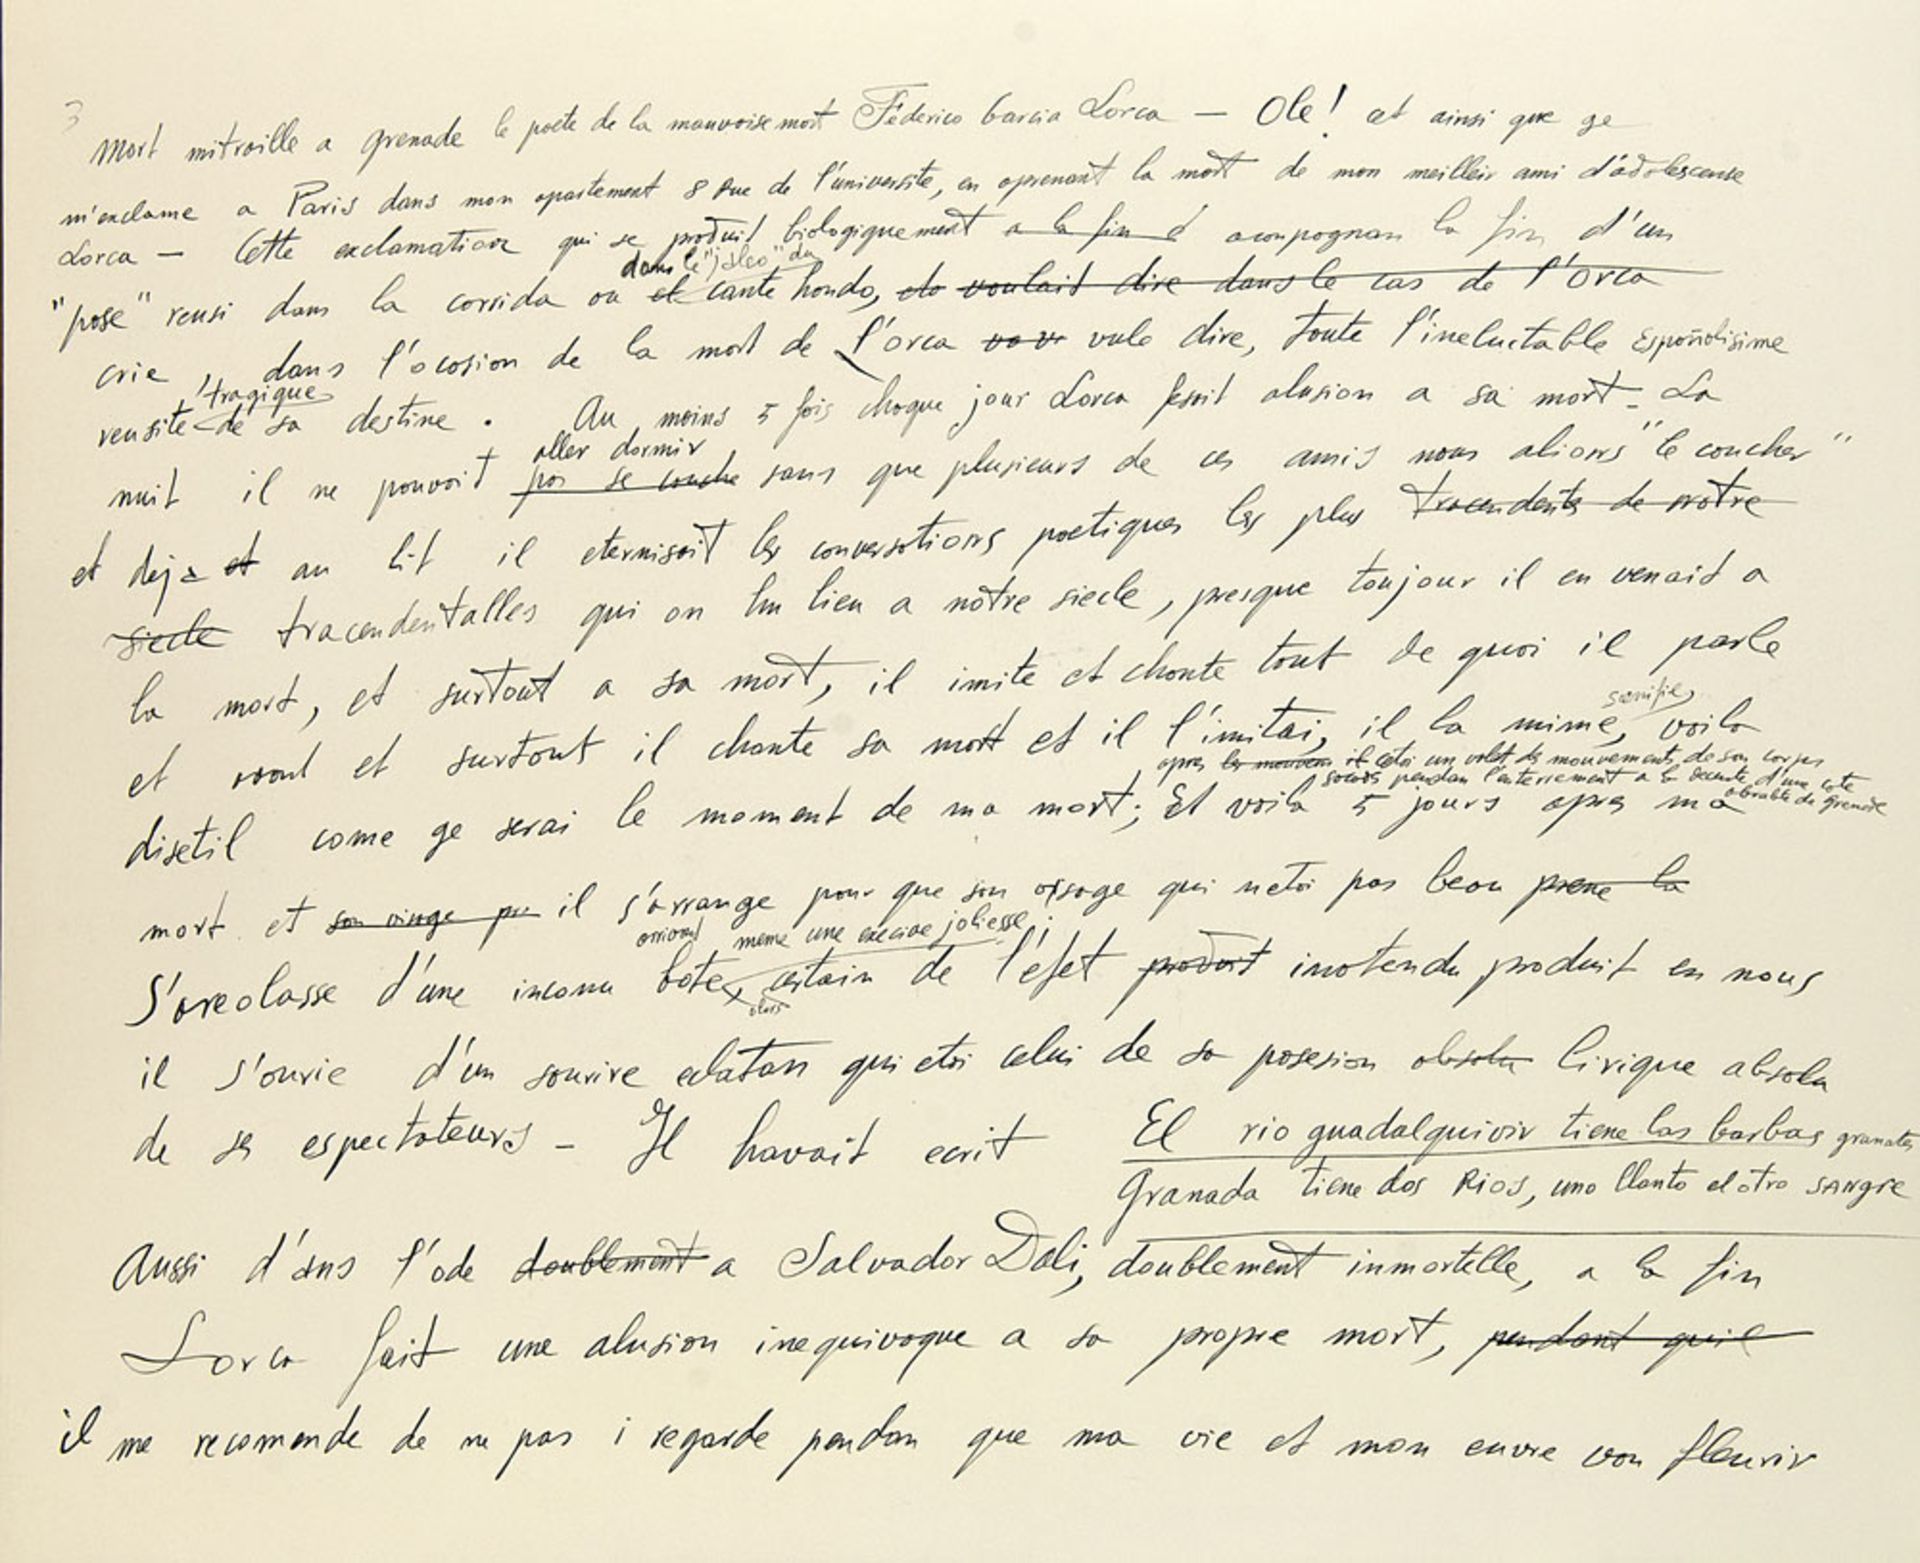 3
Mort mitraille a grenade le poete de la mauvoise mort Féderico Garcia Lorca — Ole! cet ainsi que ge
m'exclame a Paris dans mon apartement 8 Rue de l'universite, en aprenant la mort de mon meilleir ami d'adolescense
Lorca — Cette exclamation qui se produit biologiquement a la fin d acompagnan la fin d'un
dans le "jaleo" du
"pose" reusi dans la corrida ou el cante hondo, voulait dire dans le cas de l'orca
crie, dans l'ocosion de la mort de l'orca vule dire, toute l'ineluctable Españolisime
tragique
reusite de sa destine . Au moins 5 fois chaque jour Lorca fesait alusion a sa mort - La
aller dormir
nuit il ne pouvoit pas se couche sans que plusieurs de ces amis nous alions "le coucher"
et deja et au lit il eternisait les conversations poetiques les plus tracendents de notre
siecle tracendentalles qui on lieu a notre siecle, presque toujour il en venait a
la mort, et surtout a sa mort, il imite et chante tout de quoi il parle
et avant et surtout il chante sa mort et il l'imitai, il la mime, voila
apres il etoi un volet de mouvements de son corps
pendan l'enterrement a la decente d'une cote
abrubte de Grenade
disetil come ge serai le moment de ma mort; Et voila 5 jours apres ma
mort et son visage il s'arrange pour que son visage qui netoi pas beau prene la
arrivant meme une execive joliesse
S'areolasse d'une inconu bote, certain de l'efet produit inatendu produit en nous
alors
il s'ourie d'un sourire eclatan qui etoi celui de sa posesion absolu lirique absolu
de ses espectateurs — Il havait ecrit El rio guadalquivir tiene las barbas granates
Granada tiene dos Rios, uno llanto el otro sangre
Aussi d'ans l'ode doublement a Salvador Dali, doublement inmortelle, a la fin
Lorca fait une alusion inequivoque a sa propre mort, pendant quil
il me recomende de ne pas i regarde pendan que ma vie et mon euvre von fleurir